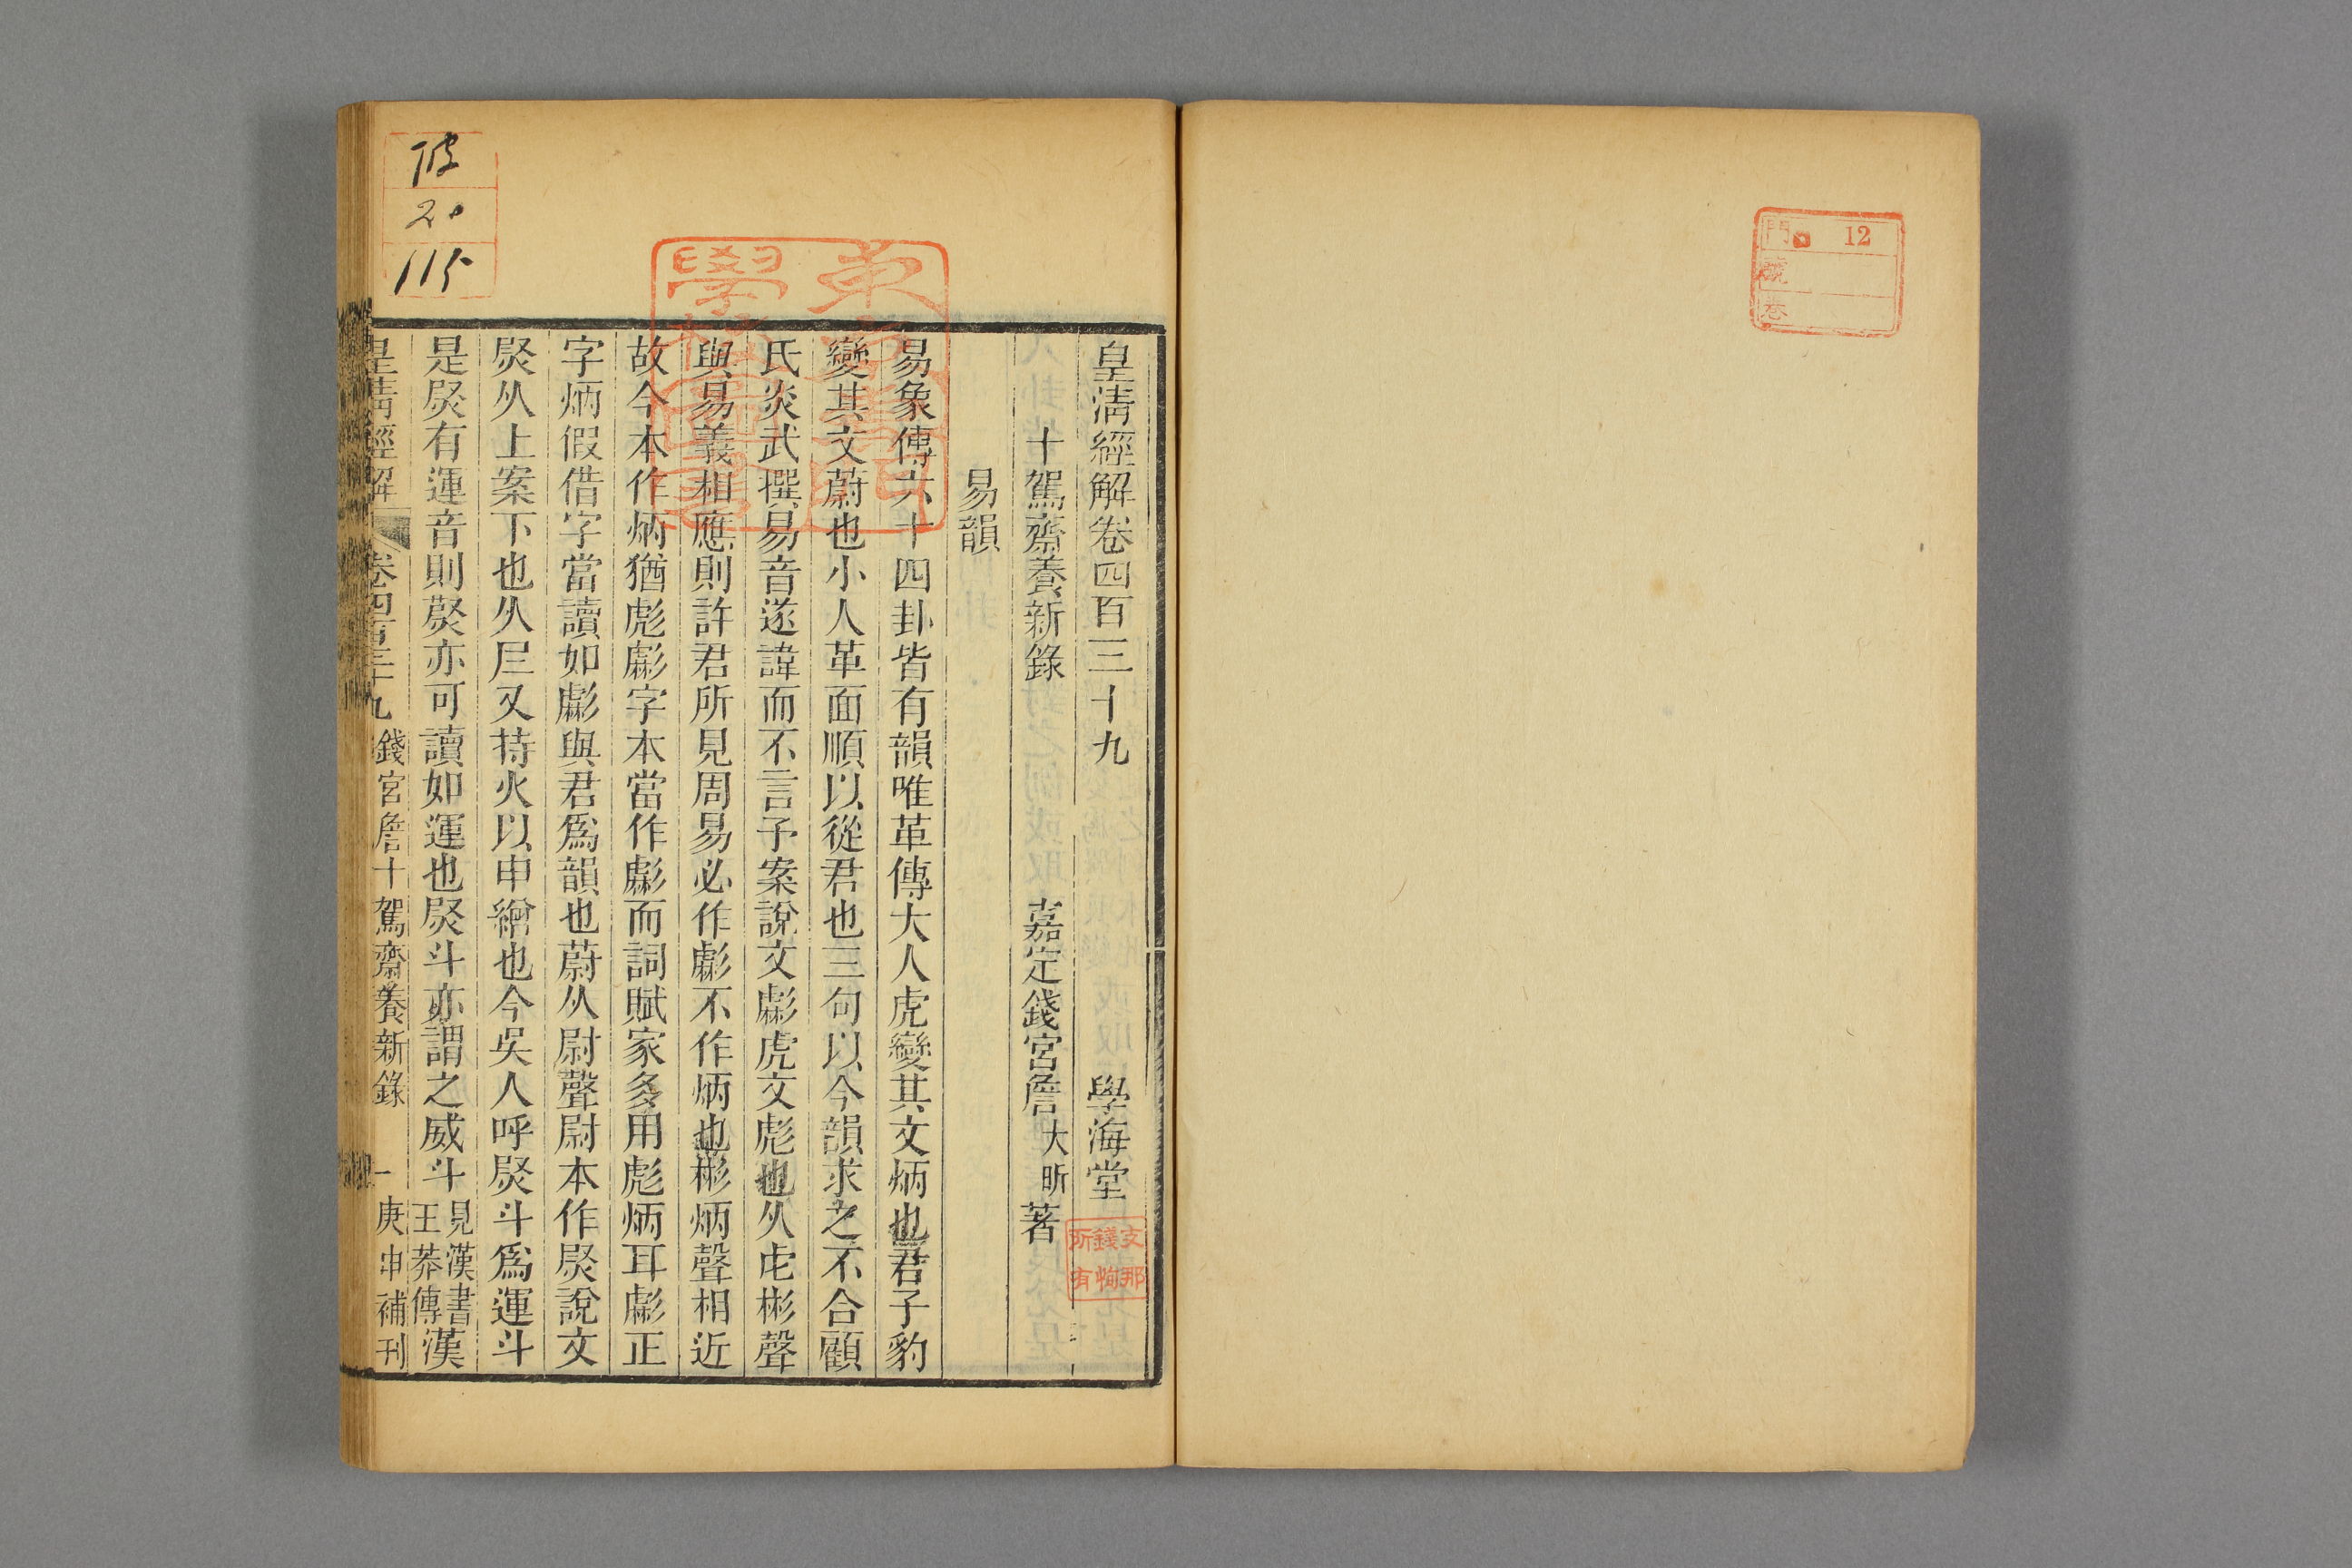 門 12
號
卷
皇清經解卷四百三十九 學海堂
支那
錢恂
所有
十駕齋養新錄 嘉定錢宮詹大昕著
易韻
易象傳六十四卦皆有韻唯革傳大人虎變其文炳也君子豹
變其文蔚也小人革面順以從君也三句以今韻求之不合顧
氏炎武撰易音遂諱而不言予案說文彪虎文彪也从虍彬聲
與易義相應則許君所見周易必作虨不作炳也彬炳聲相近
故今本作炳猶彪虨字本當作虨而詞賦家多用彪炳耳虨正
字炳假借字當讀如虨與君爲韻也蔚从尉聲尉本作㷉說文
㷉从上案下也从𡰥又持火以申繒也今吳人呼㷉斗爲運斗
是㷉有運音則㷉亦可讀如運也㷉斗亦謂之威斗見漢書王莽傳漢
皇清經解 卷四百三十九 錢宮詹十駕齋養新錄 一 庚申補刊
20
115